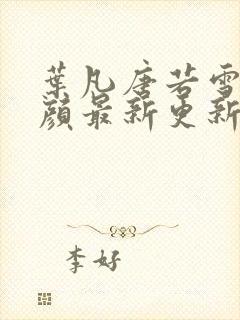 葉凡唐若雪
顔最新更新
李好